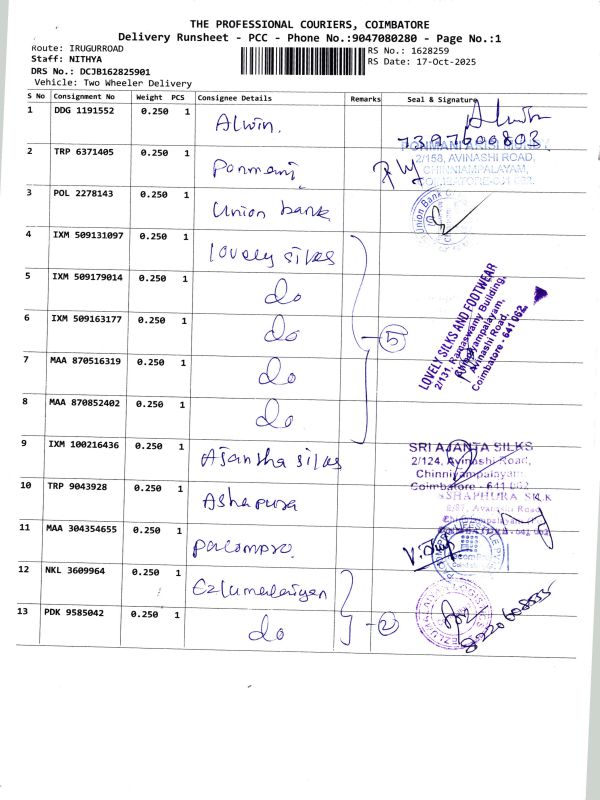 THE PROFESSIONAL COURIERS, COIMBATORE
Delivery Runsheet - PCC - Phone No.:9047080280 - Page No.:1
Route: IRUGURROAD
RS No.: 1628259
Staff: NITHYA
RS Date: 17-Oct-2025
DRS No.: DCJB162825901
Vehicle: Two Wheeler Delivery
S No Consignment No Weight PCS Consignee Details Remarks Seal & Signature
1 DDG 1191552 0.250 1 Alwin. Alwin
7397600803
2 TRP 6371405 0.250 1 Ponmani
2/158, AVINASHI ROAD,
CHINNIAMPALAYAM,
3 POL 2278143 0.250 1 Union bank
Union Bank
4 IXM 509131097 0.250 1 lovely silks
5 IXM 509179014 0.250 1 do
6 IXM 509163177 0.250 1 do
5
7 MAA 870516319 0.250 1 do
8 MAA 870852402 0.250 1 do
LOVELY SILKS AND FOOTWEAR
2/131, Ramaswamy Building,
Chinniyampalayam,
Avinashi Road,
Coimbatore - 641 062
9 IXM 100216436 0.250 1 Ajantha silks
SRI AJANTA SILKS
2/124, Avinashi Road,
Chinniyampalayam
Coimbatore - 641 062
10 TRP 9043928 0.250 1 Ashapura
ASHAPHURA SILK
Avinashi Road
Chinniyampalayam
11 MAA 304354655 0.250 1
12 NKL 3609964 0.250 1
13 PDK 9585042 0.250 1 do
2